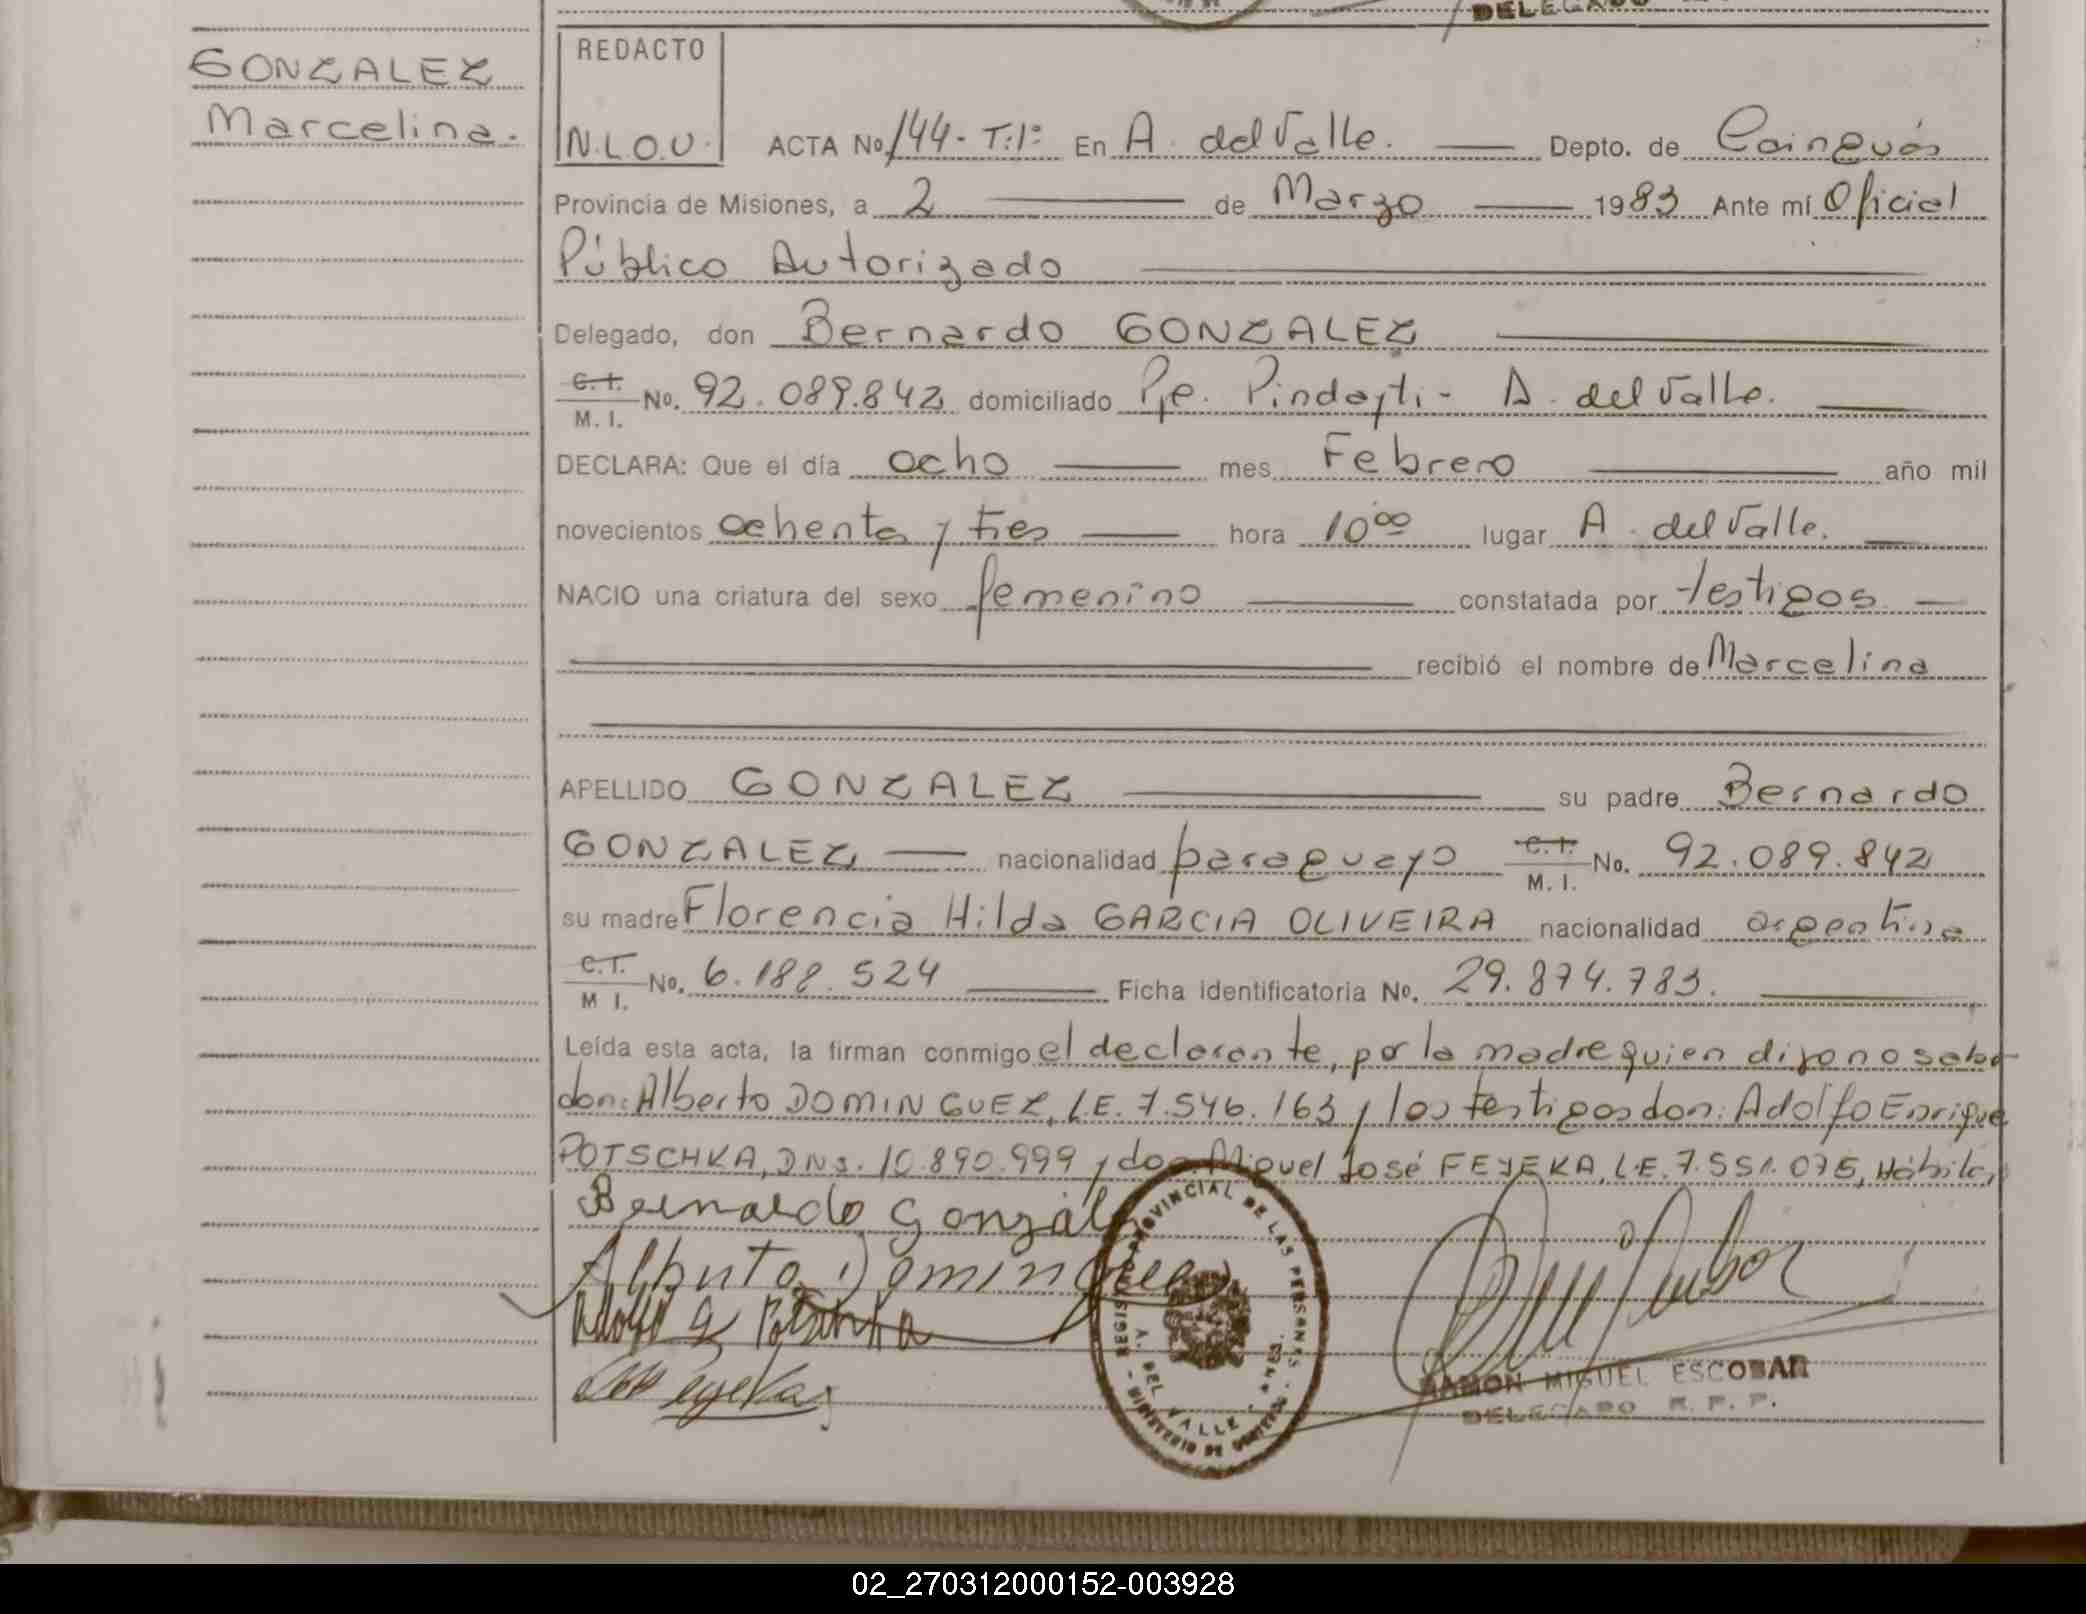 DELEGADO
GONZALEZ
Marcelina.
REDACTO
N.L.O.U.
ACTA No. 144 - T:1º En A. del Valle. Depto. de Cainguás
Provincia de Misiones, a 2 de Marzo 1983 Ante mí Oficial
Público Autorizado
Delegado, don Bernardo GONZALEZ
C. I. M. I. No. 92.089.842 domiciliado Pje. Pindayti - A. del Valle.
DECLARA: Que el día ocho mes Febrero año mil
novecientos ochenta y tres hora 10⁰⁰ lugar A. del Valle.
NACIO una criatura del sexo femenino constatada por testigos
recibió el nombre de Marcelina
APELLIDO GONZALEZ su padre Bernardo
GONZALEZ nacionalidad paraguayo C. I. M. I. No. 92.089.842
su madre Florencia Hilda GARCIA OLIVEIRA nacionalidad argentina
C. I. M I. No. 6.188.524 Ficha identificatoria No. 29.874.783.
Leída esta acta, la firman conmigo el declarante, por la madre quien dijo no saber
don: Alberto DOMINGUEZ, L.E. 7.546.163 y los testigos don: Adolfo Enrique
POTSCHKA, DNI. 10.890.999 y don Miguel José FEYEKA, L.E. 7.551.075, Hábiles,
Bernardo Gonzál
Alberto Dominguez
Adolfo E Potschka
REGISTRO PROVINCIAL DE LAS PERSONAS
A. DEL VALLE - MNES.
MINISTERIO DE GOBIERNO
RAMON MIGUEL ESCOBAR
DELEGADO R. P. P.
02_270312000152-003928